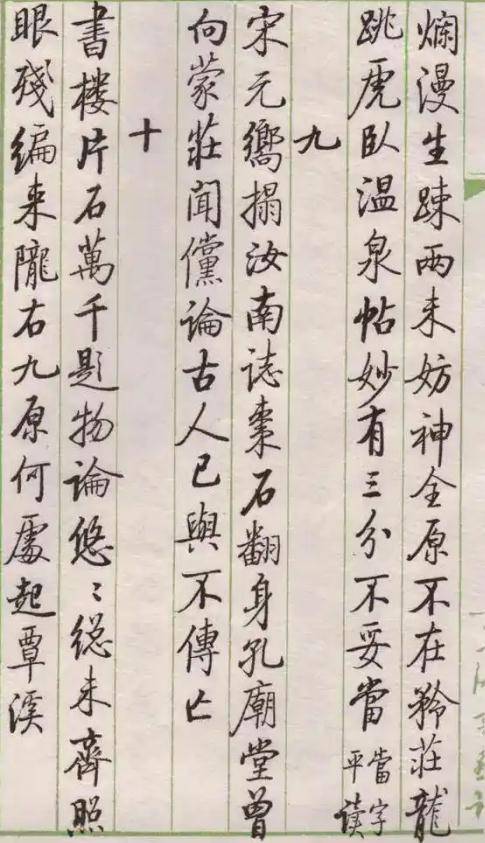 爛漫生疎兩未妨神全原不在矜莊龍
跳虎臥温泉帖妙有三分不妥當
當字
平读
九
宋元嚮搨汝南誌棗石翻身孔廟堂曾
向蒙莊聞儻論古人已與不傳亡
十
書樓片石萬千題物論悠〻緫未齊照
眼殘編来隴右九原何處起覃溪